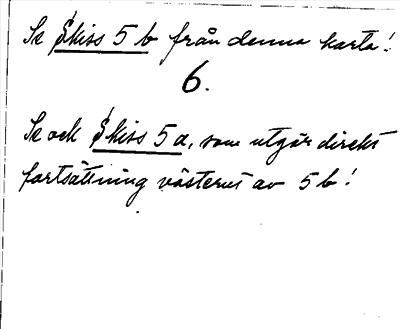 Se Skiss 5 b från denna karta!
6.
Se ock Skiss 5a, som utgör direkt
fortsättning västerut av 5 b!